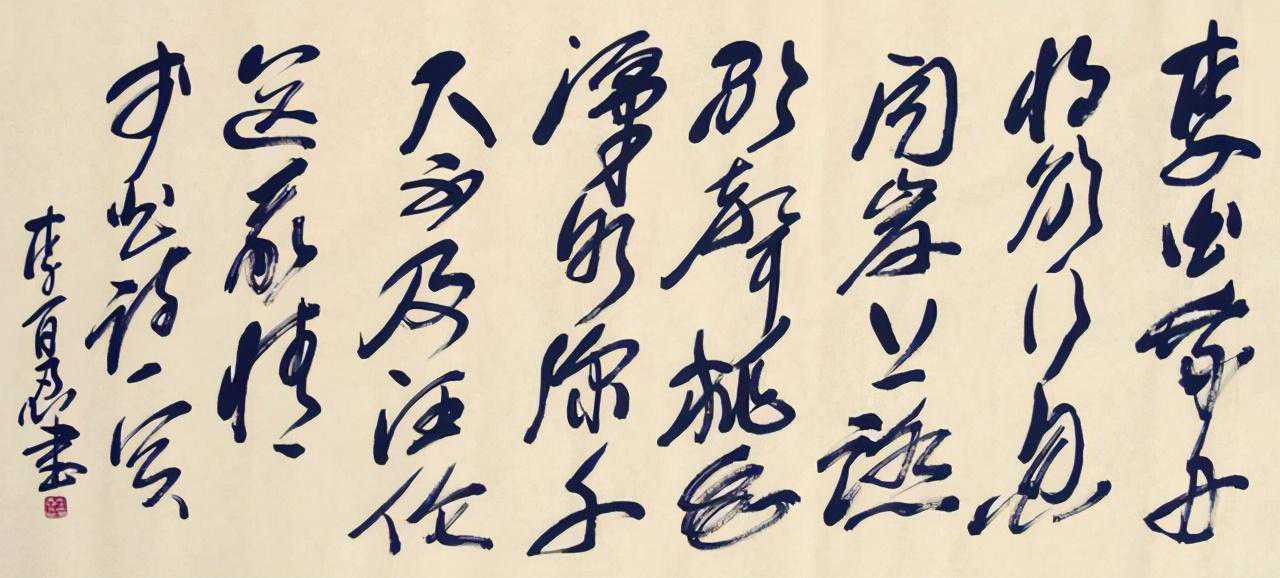 李白乘舟
将欲行忽
闻岸上踏
歌聲桃花
潭水深千
尺不及汪伦
送我情
诗一
李百忍书